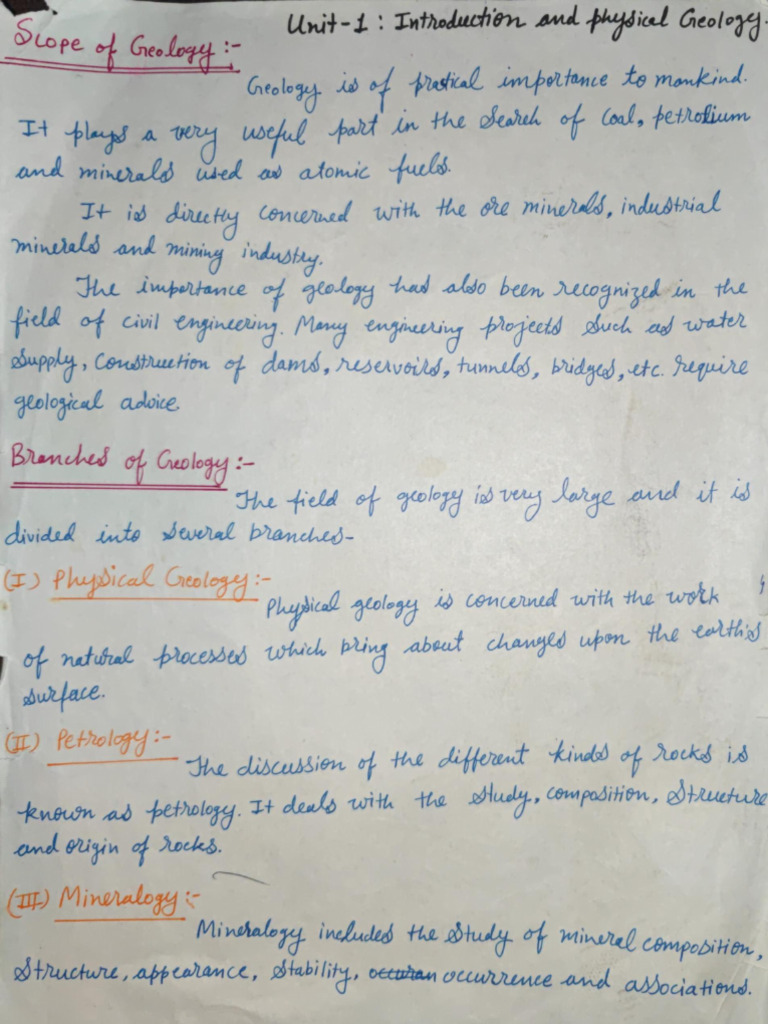 Unit-1 : Introduction and physical Geology.
Scope of Geology :-
Geology is of pratical importance to mankind.
It plays a very useful part in the search of coal, petrolium
and minerals used as atomic fuels.
It is directly concerned with the ore minerals, industrial
minerals and mining industry.
The importance of geology has also been recognized in the
field of civil engineering. Many engineering projects such as water
supply, construction of dams, reservoirs, tunnels, bridges, etc. require
geological advice.
Branches of Geology :-
The field of geology is very large and it is
divided into several branches-
(I) Physical Geology :-
Physical geology is concerned with the work
of natural processes which bring about changes upon the earth's
surface.
(II) Petrology :-
The discussion of the different kinds of rocks is
known as petrology. It deals with the study, composition, structure
and origin of rocks.
(III) Mineralogy :-
Mineralogy included the study of mineral composition,
structure, appearance, stability, occurrence and associations.